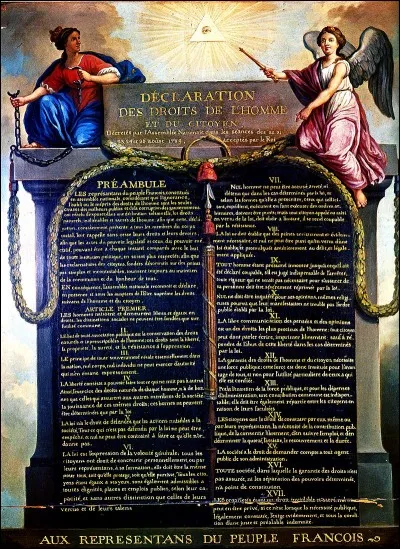 DÉCLARATION
DES DROITS DE L'HOMME
ET DU CITOYEN,
Décretés par l'Assemblée Nationale dans les séances des 20, 21
acceptés par le Roi
PRÉAMBULE
LES représentans du peuple François, constitués
en assemblée nationale, considérant que l'ignorance,
l'oubli ou le mépris des droits de l'homme sont les seules
causes des malheurs publics et de la corruption des gouvernemens
ont résolu d'exposer dans une déclaration solemnelle, les droits
naturels, inaliénables et sacrés de l'homme; afin que cette décla-
ration, constamment présente à tous les membres du corps
social, leur rappelle sans cesse leurs droits et leurs devoirs;
afin que les actes du pouvoir législatif et ceux du pouvoir exé-
cutif, pouvant être à chaque instant comparés avec le but
de toute institution politique, en soient plus respectés; afin que
les réclamations des citoyens, fondées désormais sur des princi-
pes simples et incontestables, tournent toujours au maintien
de la constitution et du bonheur de tous.
EN conséquence, l'assemblée nationale reconnoit et déclare
en présence et sous les auspices de l'Etre suprême les droits
suivans de l'homme et du citoyen.
ARTICLE PREMIER.
LES hommes naissent et demeurent libres et égaux en
droits, les distinctions sociales ne peuvent être fondées que sur
l'utilité commune.
II.
LE but de toute association politique est la conservation des droits
naturels et imprescriptibles de l'homme; ces droits sont la liberté,
la propriété, la sureté, et la résistance à l'oppression.
III.
LE principe de toute souveraineté réside essentiellement dans
la nation, nul corps, nul individu ne peut exercer d'autorité
qui n'en émane expressément.
IV.
LA liberté consiste à pouvoir faire tout ce qui ne nuit pas à autrui
Ainsi, l'exercice des droits naturels de chaque homme, n'a de bor-
nes que celles qui assurent aux autres membres de la société
la jouissance de ces mêmes droits; ces bornes ne peuvent
être déterminées que par la loi
V.
LA loi n'a le droit de défendre que les actions nuisibles à la
société. Tout ce qui n'est pas défendu par la loi ne peut être
empêché, et nul ne peut être contraint à faire ce qu'elle n'or-
donne pas.
VI.
LA loi est l'expression de la volonté générale; tous les
citoyens ont droit de concourir personnellement, ou par
leurs représentans, à sa formation; elle doit être la même
pour tous, soit qu'elle protege, soit qu'elle punisse. Tous les cito-
yens étant égaux à ses yeux, sont également admissibles à
toutes dignités, places et emplois publics, selon leur ca-
pacité, et sans autres distinction que celles de leurs
vertus et de leurs talens.
VII.
NUL homme ne peut être accusé, arrêté, ni
détenu que dans les cas déterminés par la loi, et
selon les formes qu'elle a prescrites, ceux qui sollici-
tent, expédient, exécutent ou font exécuter des ordres arbi-
traires, doivent être punis; mais tout citoyen appelé ou saisi
en vertu de la loi, doit obéir à l'instant, il se rend coupable
par la résistance.
VIII.
LA loi ne doit établir que des peines strictement et évidem-
ment nécessaire, et nul ne peut être puni qu'en vertu d'une
loi établie et promulguée antérieurement au délit, et légale-
ment appliquée.
IX.
TOUT homme étant présumé innocent jusqu'à ce qu'il ait
été déclaré coupable, s'il est jugé indispensable de l'arrêter,
toute rigueur qui ne seroit pas nécessaire pour s'assurer de
sa personne doit être sévèrement réprimée par la loi.
X.
NUL ne doit être inquiété pour ses opinions, mêmes religi-
euses pourvu que leur manifestation ne trouble pas l'ordre
public établi par la loi.
XI.
LA libre communication des pensées et des opinions
est un des droits les plus precieux de l'homme: tout citoyen
peut donc parler, écrire, imprimer librement: sauf à ré-
pondre de l'abus de cette liberté dans les cas déterminés
par la loi.
XII.
LA garantie des droits de l'homme et du citoyen nécessite
une force publique: cette force est donc instituée pour l'avan-
tage de tous, et non pour l'utilité particuliere de ceux a qui
elle est confiée.
XIII.
POUR l'entretien de la force publique, et pour les dépenses
d'administration, une contribution commune est indispen-
sable; elle doit être également répartie entre les citoyens en
raison de leurs facultés.
XIV.
LES citoyens ont le droit de constater par eux même ou
par leurs représentans, la nécessité de la contribution pub-
lique, de la consentir librement, d'en suivre l'emploi, et d'en
déterminer la quotité, l'assiette, le recouvrement et la durée.
XV.
LA société a le droit de demander compte à tout agent
public de son administration.
XVI.
TOUTE société, dans laquelle la garantie des droits n'est
pas assurée, ni la séparation des pouvoirs déterminée,
n'a point de constitution.
XVII.
LES propriétés étant un droit inviolable et sacré, nul ne
peut en être privé, si ce n'est lorsque la nécessité publique,
légalement constatée, l'exige évidemment, et sous la condi-
tion d'une juste et préalable indemnité.
AUX REPRESENTANS DU PEUPLE FRANCOIS